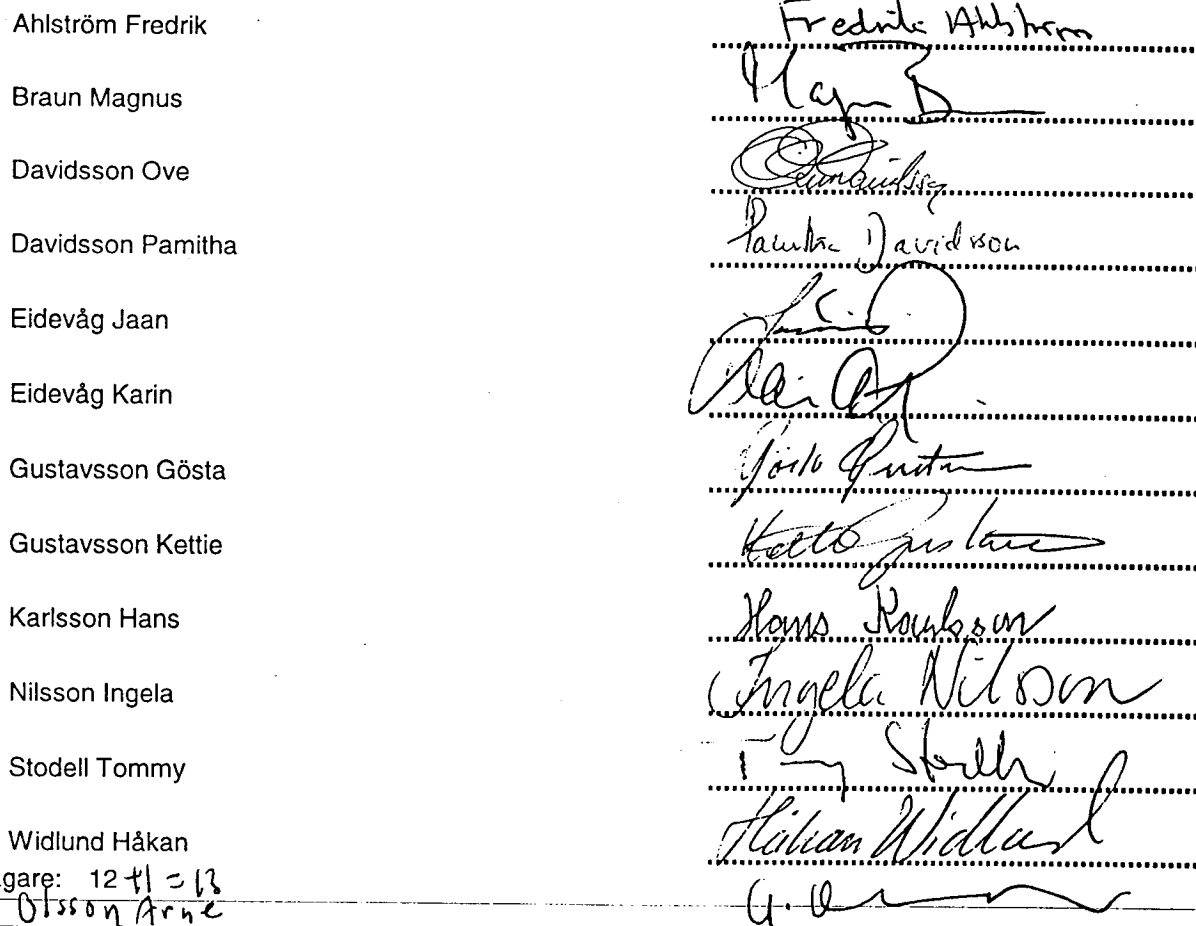 Ahlström Fredrik Fredrik Ahlström
Braun Magnus
Davidsson Ove
Davidsson Pamitha Pamitha Davidsson
Eidevåg Jaan
Eidevåg Karin
Gustavsson Gösta Gösta
Gustavsson Kettie
Karlsson Hans Hans Karlsson
Nilsson Ingela Ingela Nilsson
Stodell Tommy Stodell
Widlund Håkan Håkan Widlund
gare: 12 +1 = 13
Olsson Arne